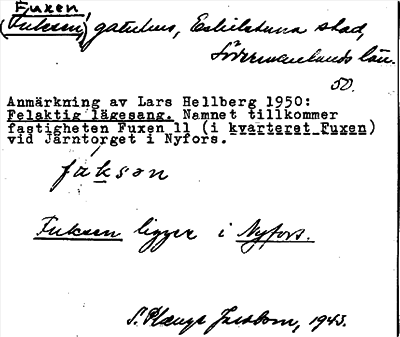 Fuxen,
(Fuksen,) gatuhus, Eskilstuna stad,
Södermanlands län.
50.
Anmärkning av Lars Hellberg 1950:
Felaktig lägesang. Namnet tillkommer
fastigheten Fuxen 11 (i kvarteret Fuxen)
vid Järntorget i Nyfors.
fuksən
Fuksen ligger i Nyfors.
S. Plange Jacobson, 1943.